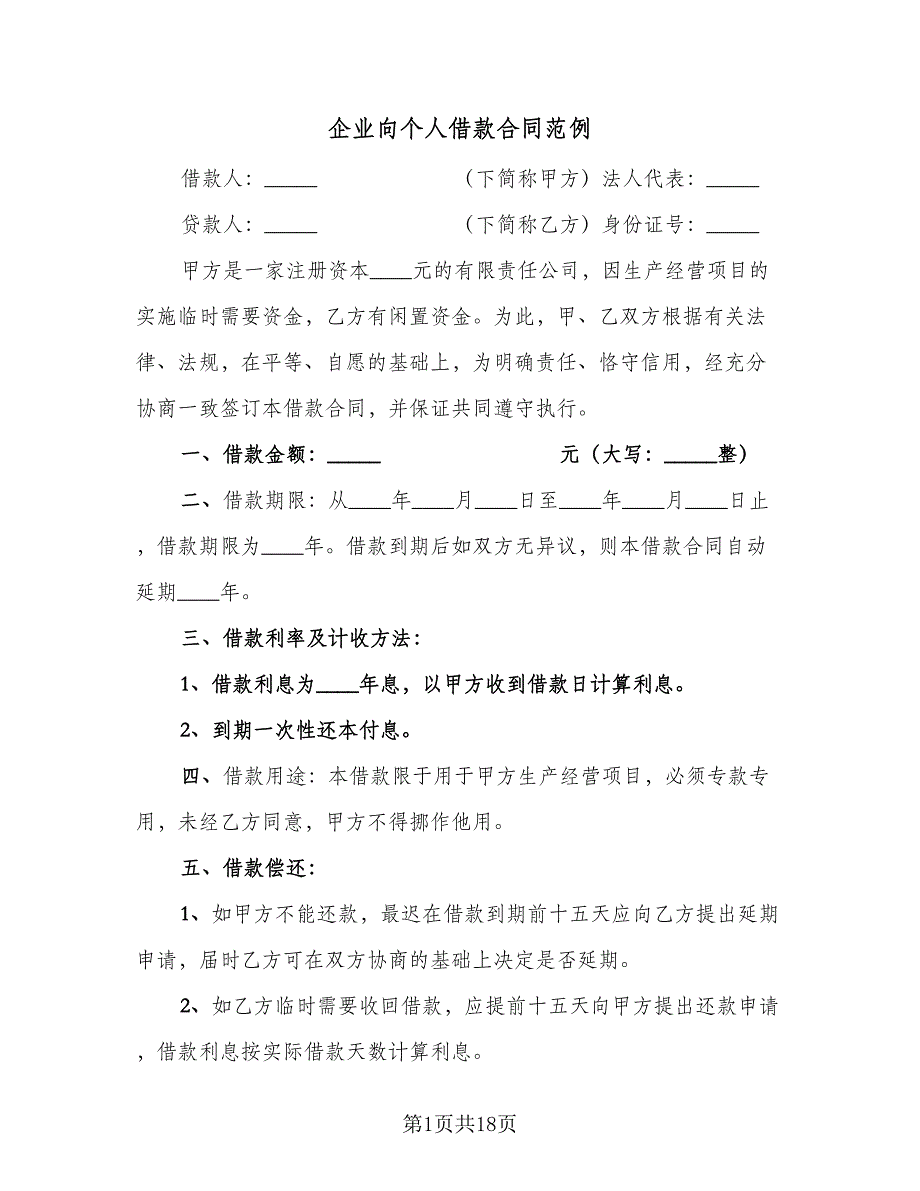 企业向个人借款合同范例
借款人：_____ （下简称甲方）法人代表：_____
贷款人：_____ （下简称乙方）身份证号：_____
甲方是一家注册资本____元的有限责任公司，因生产经营项目的
实施临时需要资金，乙方有闲置资金。为此，甲、乙双方根据有关法
律、法规，在平等、自愿的基础上，为明确责任、恪守信用，经充分
协商一致签订本借款合同，并保证共同遵守执行。
一、借款金额：_____ 元（大写：_____整）
二、借款期限：从____年____月____日至____年____月____日止
，借款期限为____年。借款到期后如双方无异议，则本借款合同自动
延期____年。
三、借款利率及计收方法：
1、借款利息为____年息，以甲方收到借款日计算利息。
2、到期一次性还本付息。
四、借款用途：本借款限于用于甲方生产经营项目，必须专款专
用，未经乙方同意，甲方不得挪作他用。
五、借款偿还：
1、如甲方不能还款，最迟在借款到期前十五天应向乙方提出延期
申请，届时乙方可在双方协商的基础上决定是否延期。
2、如乙方临时需要收回借款，应提前十五天向甲方提出还款申请
，借款利息按实际借款天数计算利息。
第1页共18页